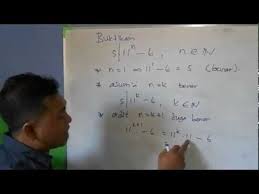 Buktikan
5 | 11ⁿ - 6, n ∈ ℕ
* n = 1 ⇒ 11¹ - 6 = 5 (benar)
* asumsi n = k benar
5 | 11ᵏ - 6, k ∈ ℕ
* n = k+1 juga benar
11ᵏ⁺¹ - 6 = 11ᵏ · 11 - 6